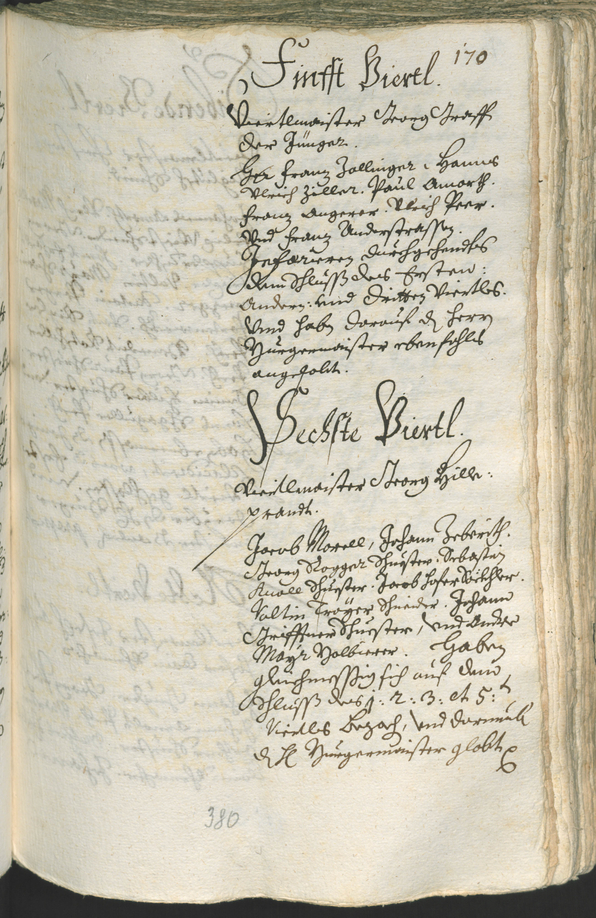 170
Fünfft Viertl.
Viertlmaister Georg Graff
der Jünger.
Hr Franz Zallinger, Hanns
Ulrich Ziller. Paul Amorth.
Franz Angerer. Ulrich Peer.
Vnd Franz Understrassen.
Referieren durchgehendts
dem Schluß des Ersten:
Andern: und dritten Viertles.
Vnd habn darauf dem Herrn
Burgermaister ebenfahls
angelobt.
Sechste Viertl.
Viertlmaister Georg Hille:
prandt.
Jacob Morell, Johann
Georg Rogger Schuster. Sebastian
Knoll Schuster. Jacob Hofer
Valtin Troyer Schneider. Johann
Griffner Schuester, Und Andre
Mayr Balbierer. Haben
gleichmessig sich auf dem
Schluß des 1: 2: 3: et 5:t
Viertls bezoch, Und darmit
Burgermaister globt
380